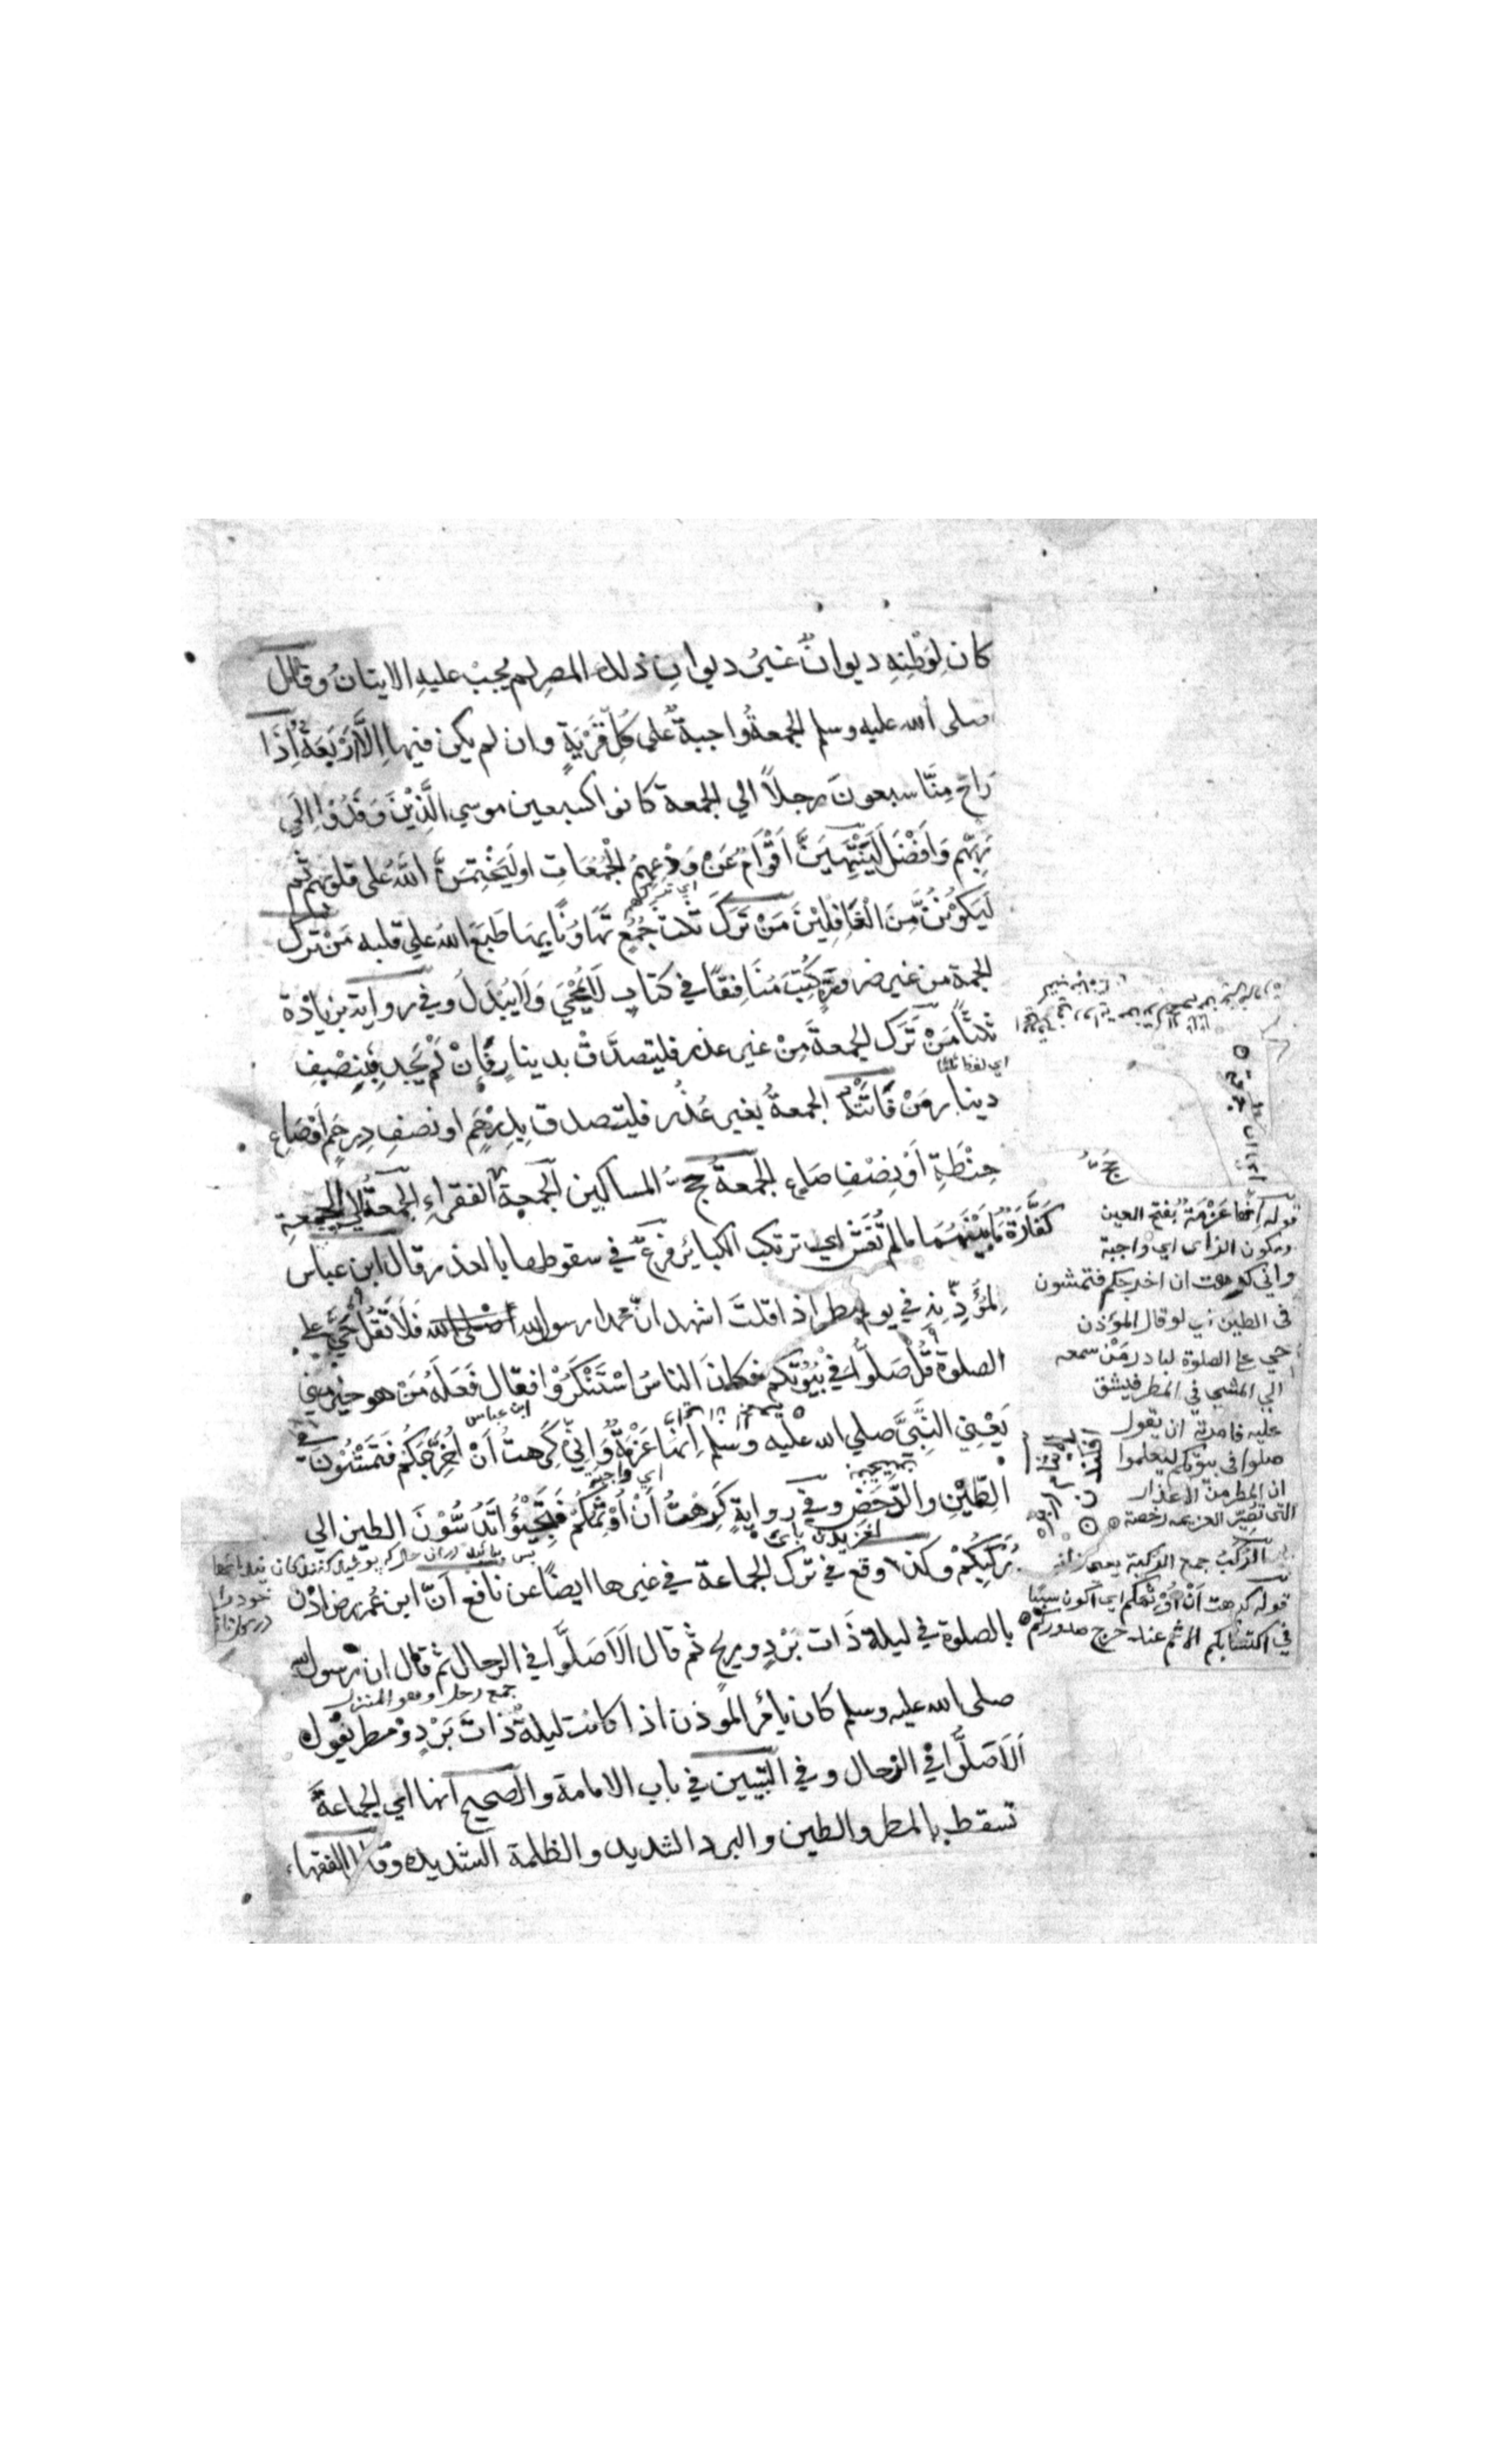 كان لِوَطَنِهِ ديوانٌ غيرُ ديوانِ ذلك المصرِ لم يجبْ عليهِ الاتيانُ وقال
صلى الله عليه وسلم الجمعةُ واجبةٌ على كُلِّ قَرْيَةٍ وان لم يكن فيها اِلَّا اَرْبَعَةٌ اِذَا
رَاحَ مِنَّا سبعونَ رجلاً الي الجمعة كانوا كسبعين موسي الَّذِيْنَ وَفَدُوْا اِلَي
رَبِّهِمْ وَاَفْضَلَ لَيَنْتَهِيَنَّ اَقْوَامٌ عَنْ وَدْعِهِمُ الْجُمُعَاتِ او لَيَخْتِمَنَّ اللهُ على قلوبهم ثم
لَيَكُوْنُنَّ مِنَ الْغَافِلِيْنَ مَنْ تَرَكَ ثلث جُمُعٍ تَهَاوُنًا بِهَا طَبَعَ اللهُ علي قلبه مَنْ ترك
الجمعة من غير ضرورةٍ كُتِبَ مُنَافِقًا في كتابٍ لَا يُمْحٰي وَلَا يُبَدَّلُ وفي رواية بن زيادة
ثلثًا مَنْ تَرَكَ الجمعةَ مِنْ غير عذر فليتصدَّقْ بدينارٍ فَاِنْ لَمْ يَجِدْ فَبِنِصْفِ
اي لفظ ثلثا
دينار مَنْ فَاتَتْهُ الجمعةُ بغير عُذْرٍ فليتصدق بِدِرْهَمٍ او نصفِ دِرهَمٍ اَوْ صَاعِ
حِنْطَةٍ اَوْ نِصْفِ صَاعٍ الجمعةُ حجُّ المساكين الجمعة حجُّ الفقراءِ الجمعةُ الي الجمعةِ
كَفَّارَةٌ مَا بَيْنَهُمَا مالم تُغْشَ اي ترتكب الكبائر فرعٌ في سقوطها بالعذر قال ابن عباس
لِمُؤَذِّنِهِ في يوم مطر اذا قلتَ اشهد انّ محمدا رسول الله فَلَا تَقُلْ حَيَّ علي
الصلوة قُلْ صَلُّوْا فِيْ بُيُوْتِكم فكانَ الناسُ اسْتَنْكَرُوْا فقال فَعَلَهُ مَنْ هو خير مني
ابن عباس
يَعْنِي النَّبِيَّ صلي الله عليه وسلم اِنَّهَا عَزْمَةٌ وَاِنِّيْ كَرِهتُ اَنْ اُخْرِجَكُمْ فَتَمْشُوْنَ في
اي واجبة
الطِّيْنِ والدَّحَضِ وفي روايةٍ كَرِهْتُ اَنْ اُؤَثِّمَكُمْ فَتَجِيْؤُا تَدُوْسُوْنَ الطين الي
لغزيدن پای
رُكَبِكُمْ وكذا وقع في ترك الجماعة في غيرها ايضًا عن نافع اَنّ ابن عُمر رضـ اَذّن
بالصلوة في ليلة ذَات بَرْدٍ وريحٍ ثم قال اَلَا صَلُّوا في الرحال ثم قال ان رسول الله
جمع رحل وهو المنزل
صلى الله عليه وسلم كان يأمر الموذن اذا كانت ليلةٌ ذَاتَ بَرْدٍ وَمطر يقول
اَلَا صَلُّوا في الرّحال وفي التبيين في باب الامامة والصحيح انها اي الجماعةَ
تسقط بالمطر والطين والبرد الشديد والظلمة الشديده وقال الفقهاء
قوله اِنَّها عَزْمَةٌ بفتح العين
وسكون الزاى اي واجبة
واني كرهت ان اخرجكم فتمشون
في الطين اي لو قال الموذن
حي علي الصلوة لبادر مَنْ سمعه
الي المشي في المطر فيشق
عليه فامرته ان يقول
صلوا في بيوتكم ليعلموا
ان المطر من الاعذار
التى تُصَيِّر العزيمه رخصة
الرُكَبُ جمع الركبة بمعنى زانو
قوله كرهت اَنْ اُؤَثِّمكم اي اكون سببًا
في اكتسابكم الاثم عند حرج صدوركم